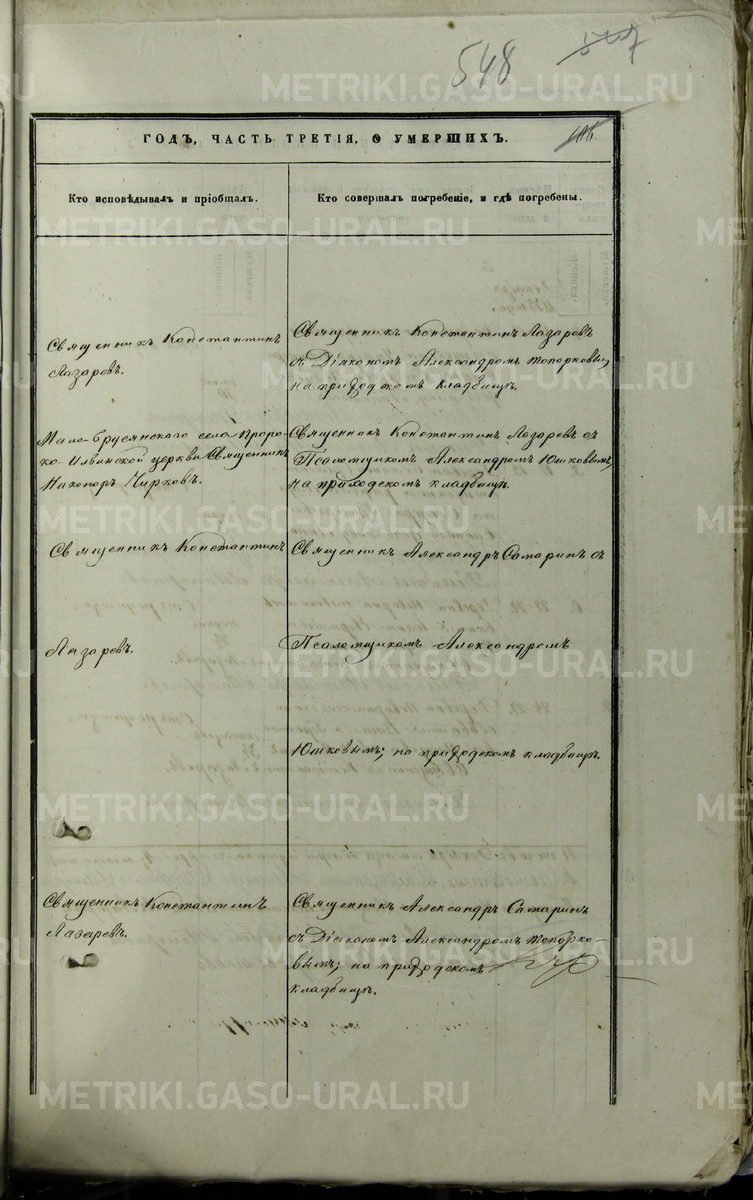 548
METRIKI.GASO-URAL.RU
ГОДЪ, ЧАСТЬ ТРЕТІЯ, О УМЕРШИХЪ.
Кто исповѣдывалъ и пріобщалъ.
Кто совершалъ погребеніе, и гдѣ погребены.
METRIKI.GASO-URAL.RU
Священникъ Константинъ
Лазаревъ.
Священникъ Константинъ Лазаревъ
съ Діякономъ Александромъ Топорковымъ,
на приходскомъ кладбищѣ.
METRIKI.GASO-URAL.RU
Мало-Брусянскаго села Проро-
ко-Ильинской церкви Священникъ
Никоноръ Чирковъ.
Священникъ Константинъ Лазаревъ съ
Псаломщикомъ Александромъ Юшковымъ,
на приходскомъ кладбищѣ.
METRIKI.GASO-URAL.RU
Священникъ Константинъ
Лазаревъ.
Священникъ Александръ Самаринъ съ
Псаломщикомъ Александромъ
Юшковымъ; на приходскомъ кладбищѣ.
METRIKI.GASO-URAL.RU
METRIKI.GASO-URAL.RU
Священникъ Константинъ
Лазаревъ.
Священникъ Александръ Самаринъ
съ Діякономъ Александромъ Топорко-
вымъ; на приходскомъ
кладбищѣ.
METRIKI.GASO-URAL.RU
METRIKI.GASO-URAL.RU